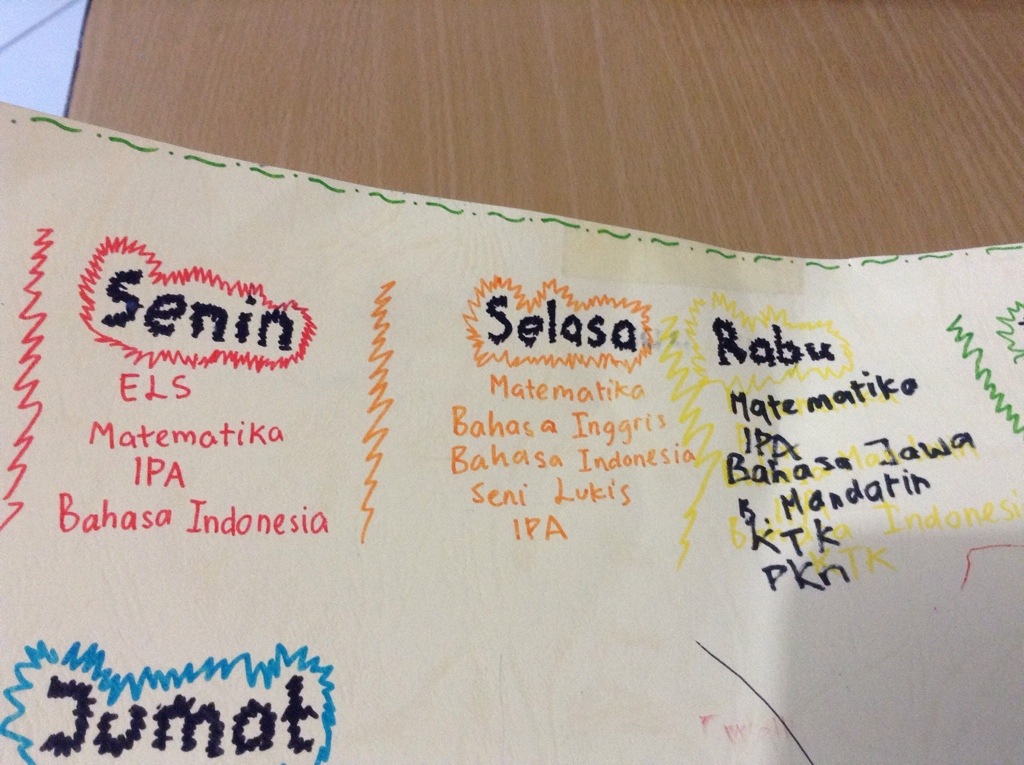 Senin
ELS
Matematika
IPA
Bahasa Indonesia
Selasa
Matematika
Bahasa Inggris
Bahasa Indonesia
Seni Lukis
IPA
Rabu
Matematika
IPA
Bahasa Jawa
B. Mandarin
KTK
PKn
Indonesi
KTK
Jumat